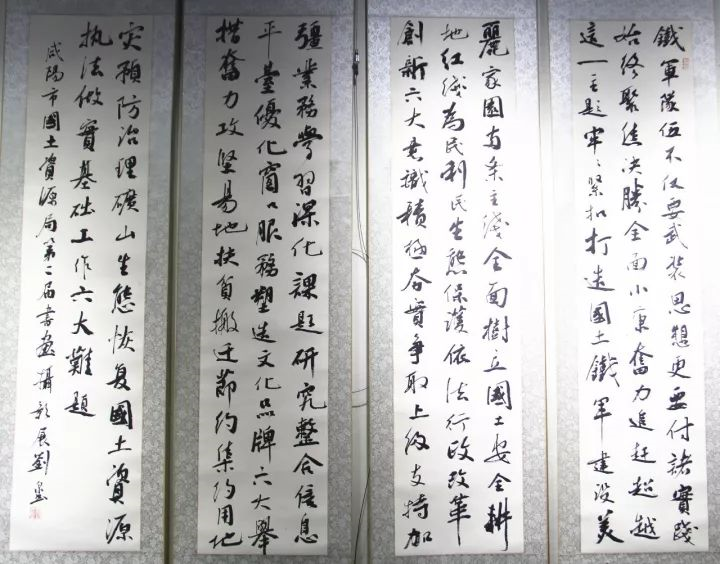 鐵軍隊伍不仅要武裝思想更要付諸實踐
始终聚焦决勝全面小康奮力追赶超越
這一主题牢〻緊扣打造國土鐵軍建设美
麗家園两条主线全面樹立國土安全耕
地红线為民利民生態保護依法行政改革
創新六大意識積極夯實争取上级支持加
強業務學習深化課题研究整合信息
平臺優化窗口服務塑造文化品牌六大舉
措奮力攻坚易地扶贫搬迁節约集约用地
灾预防治理礦山生態恢复國土資源
执法做實基础工作六大難题
咸陽市國土資源局第二届書畫攝影展劉